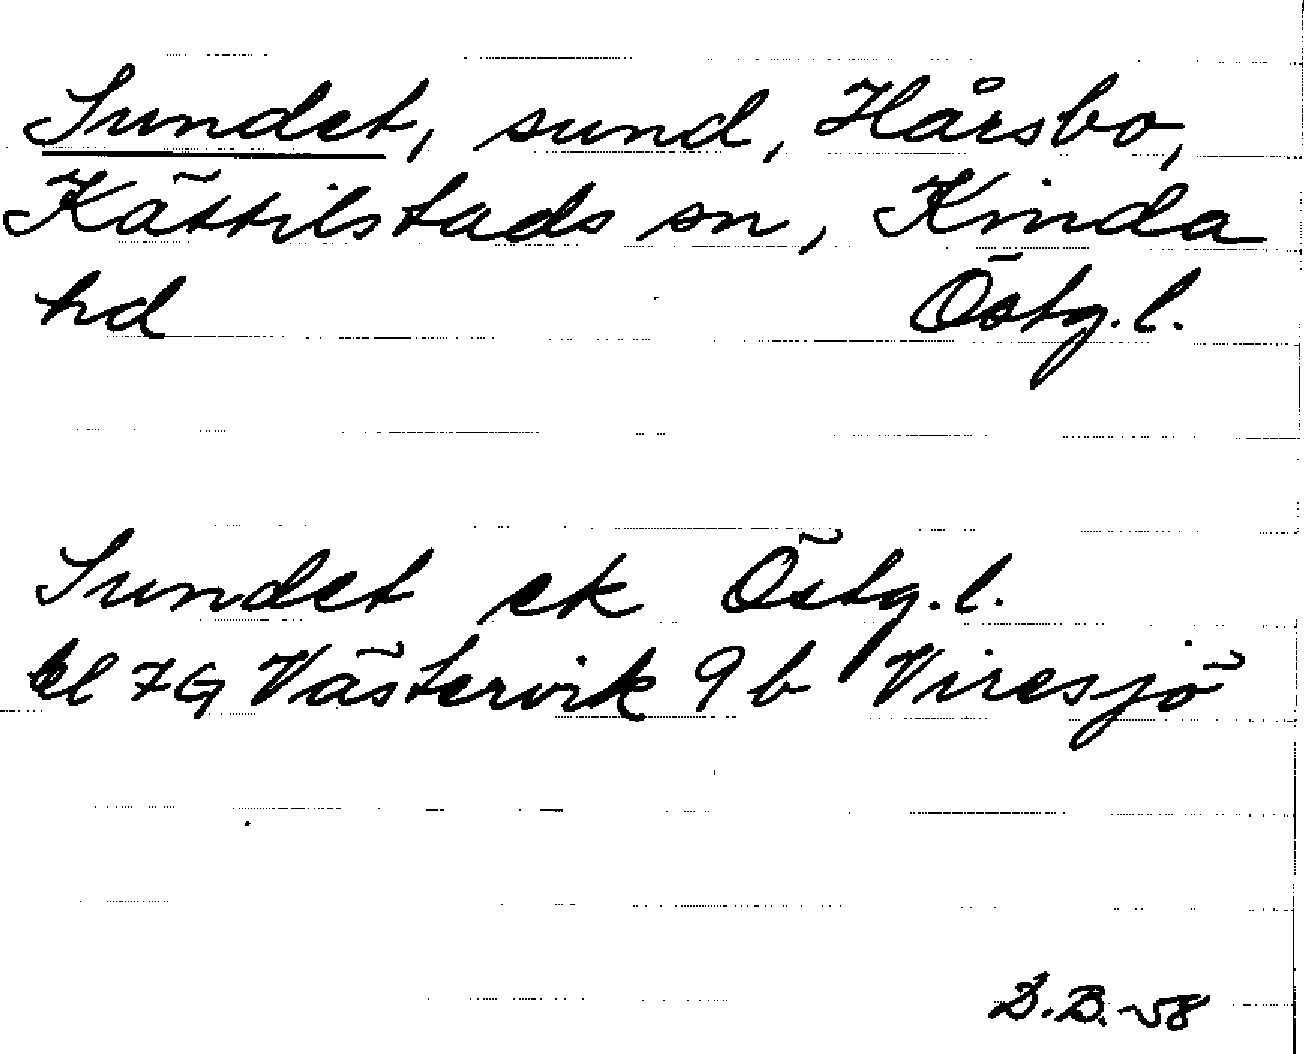 Sundet, sund, Hårsbo,
Kättilstads sn, Kinda
hd Östg.l.
Sundet ek Östg.l.
bl 7G Västervik 9b Viresjö
D.B.-58